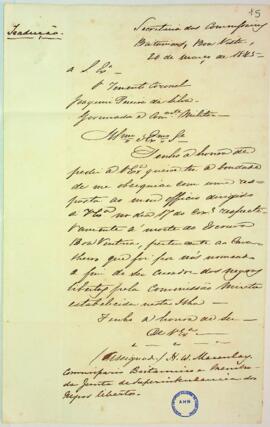 Traducção
15
Secretaria dos Commissarios
Britanicos, Boa Vista,
20 de março de 1845
A S. Exª
O Tenente Coronel
Joaquim Pereira da Silva
Governador e Com.te Militar
Illmo e Exmo Sr
Tenho a honra de
pedir a V Exª queira ter a bondade
de me obsequiar com uma res-
posta ao meu officio dirigido
a V Exª no dia 17 do Cor.e respecti-
vamente á morte do Escravo
Boa Ventura, pertencente ao Cava-
lheiro que foi por nós nomeado
a fim de ser Curador dos negros
libertos pela Commissão Mixta
estabelecida nesta Ilha.
Tenho a honra de ser
De V Exª
(Assignado) H. W. Macaulay
Commissario Britanico e Membro
da Junta de Superintendencia dos
Negros libertos.
AHN